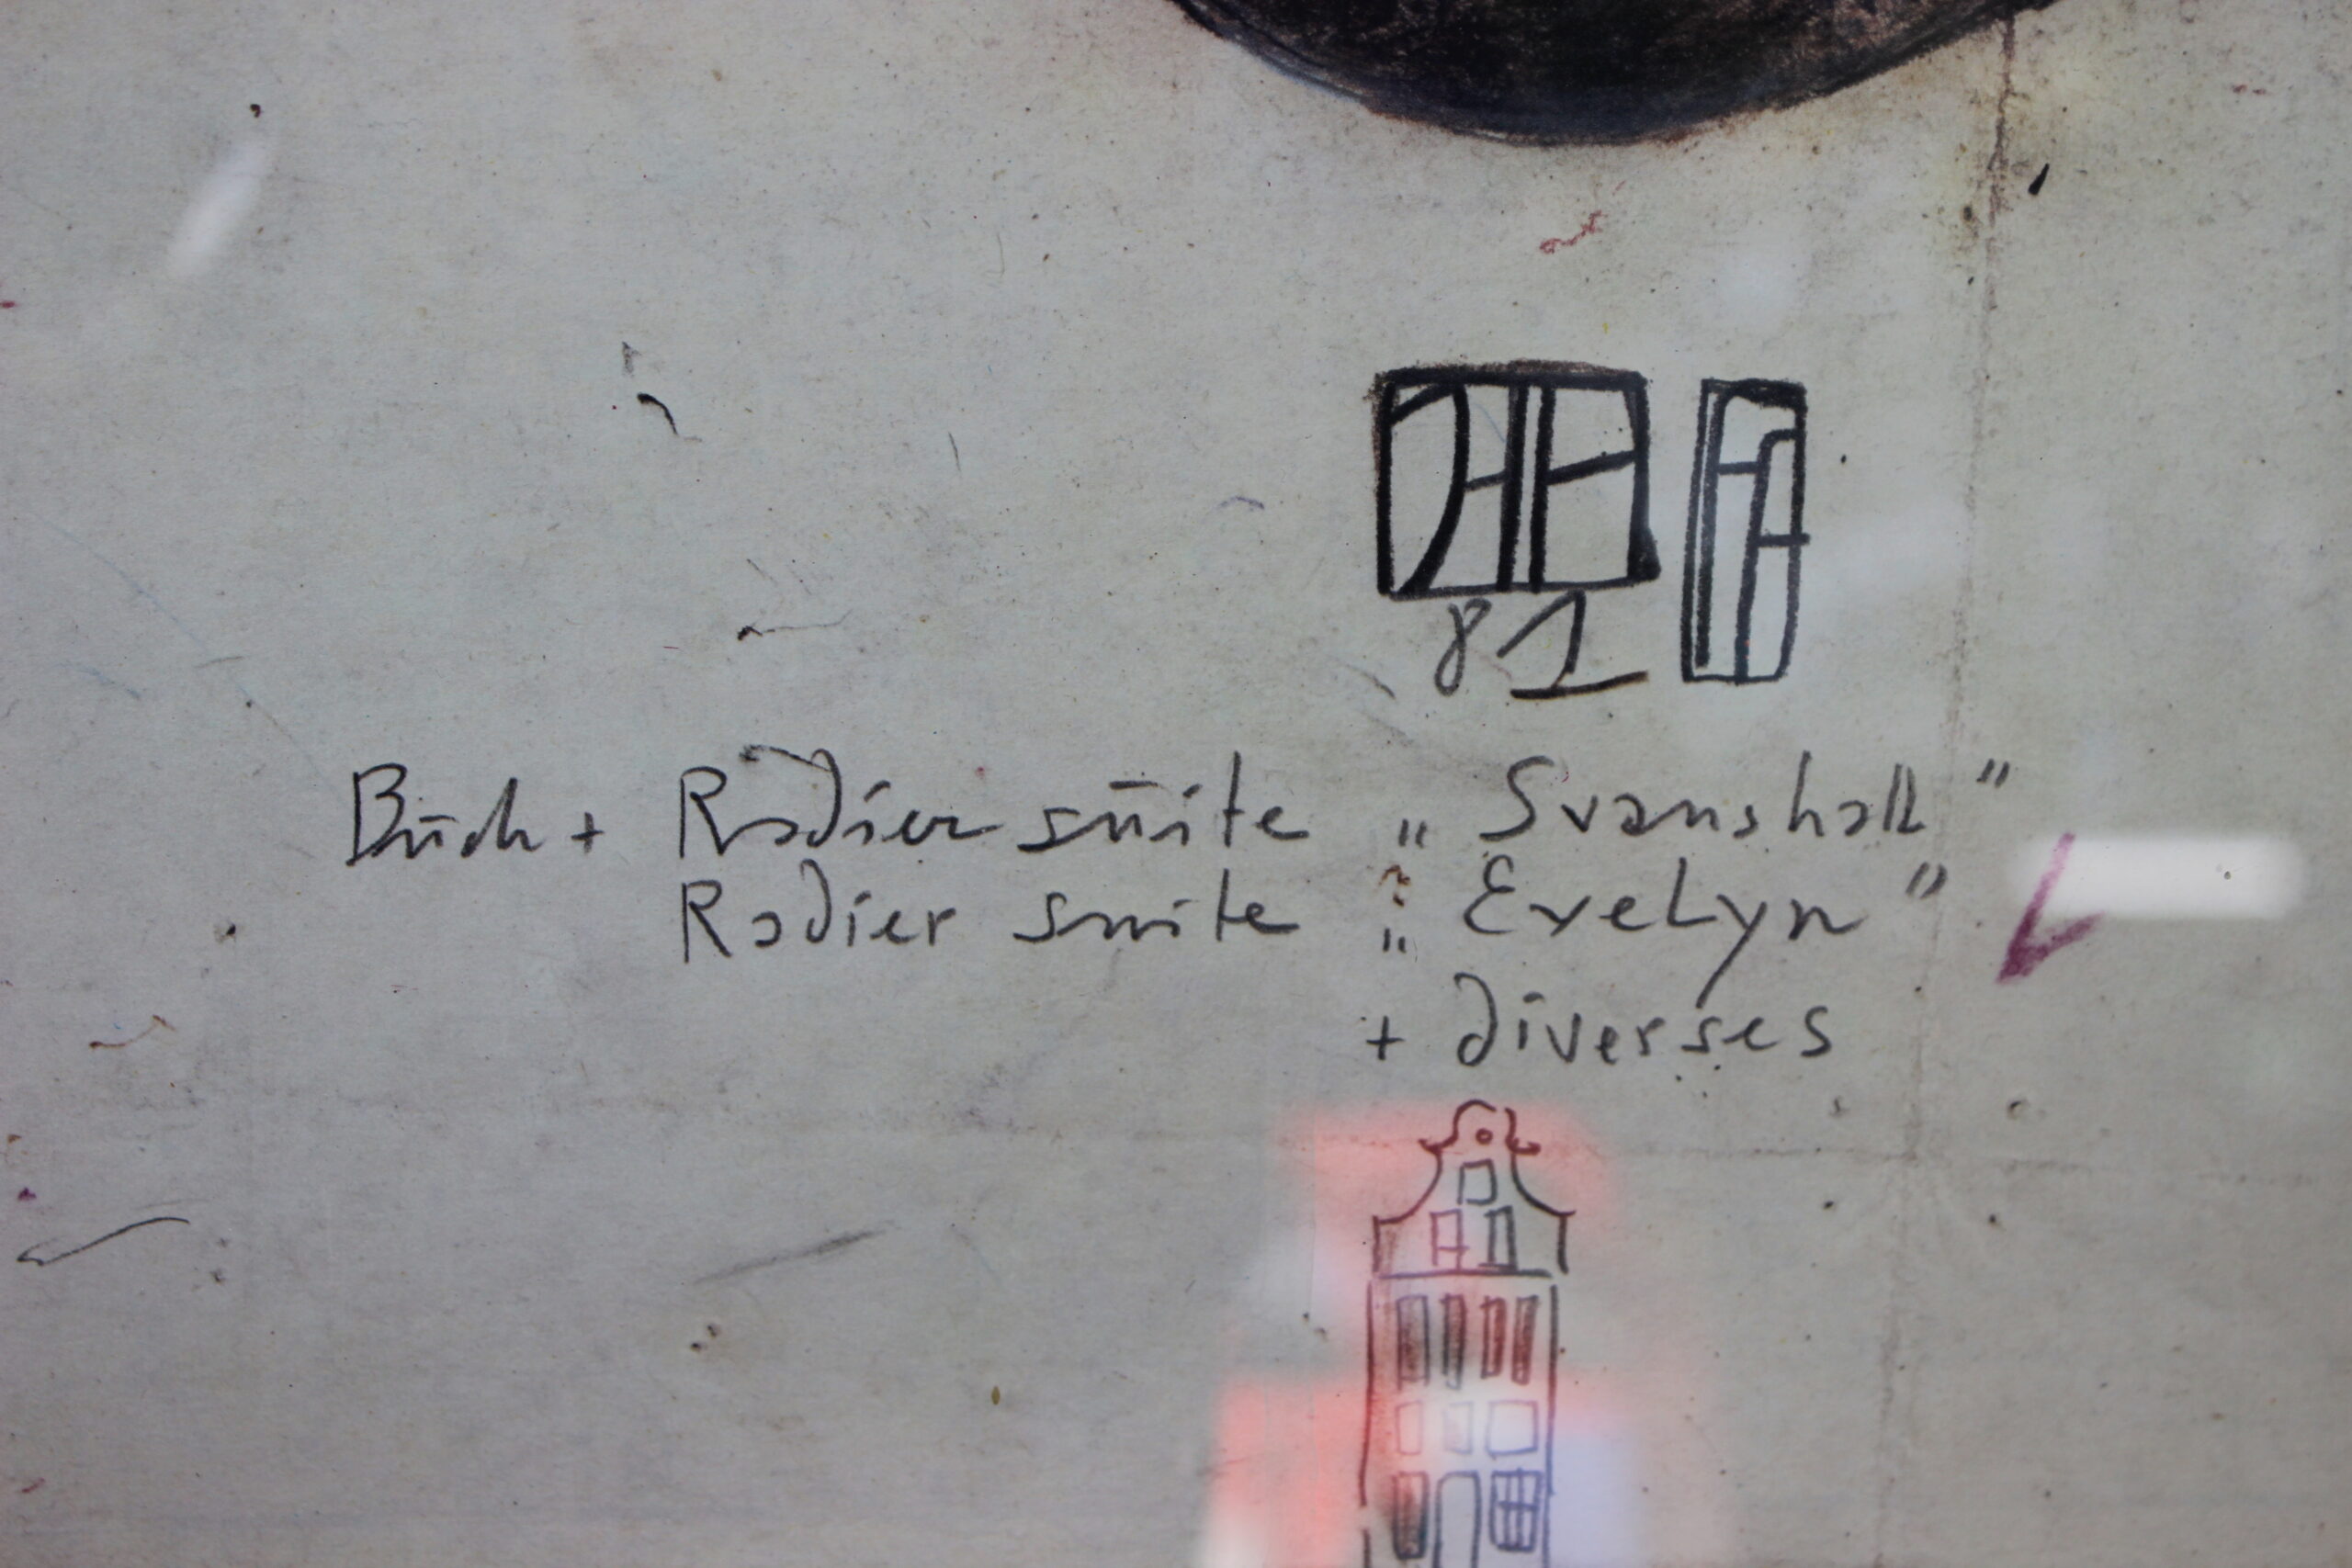 81
Buch + Radiersuite „Svanshall"
Radier suite „Evelyn"
+ diverses